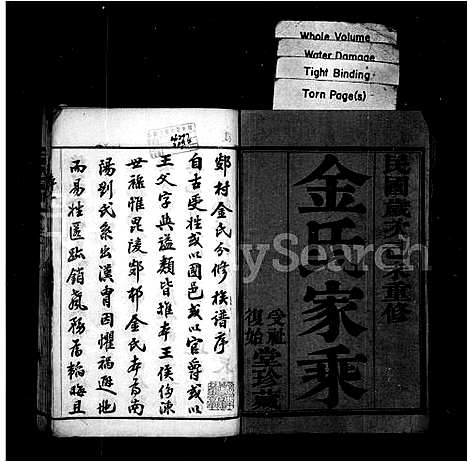 Whole Volume
Water Damage
Tight Binding
Torn Page(s)
金氏家乘
堂珍藏
鄭村金氏分修族譜序
自古受姓或以國邑或以官爵或以
王父字與諡類皆推本王侯侈陳
世祿惟毘陵鄭村金氏本南
陽劉氏系出漢胄因懼禍避地
而易姓匿跡銷聲務為韜晦且